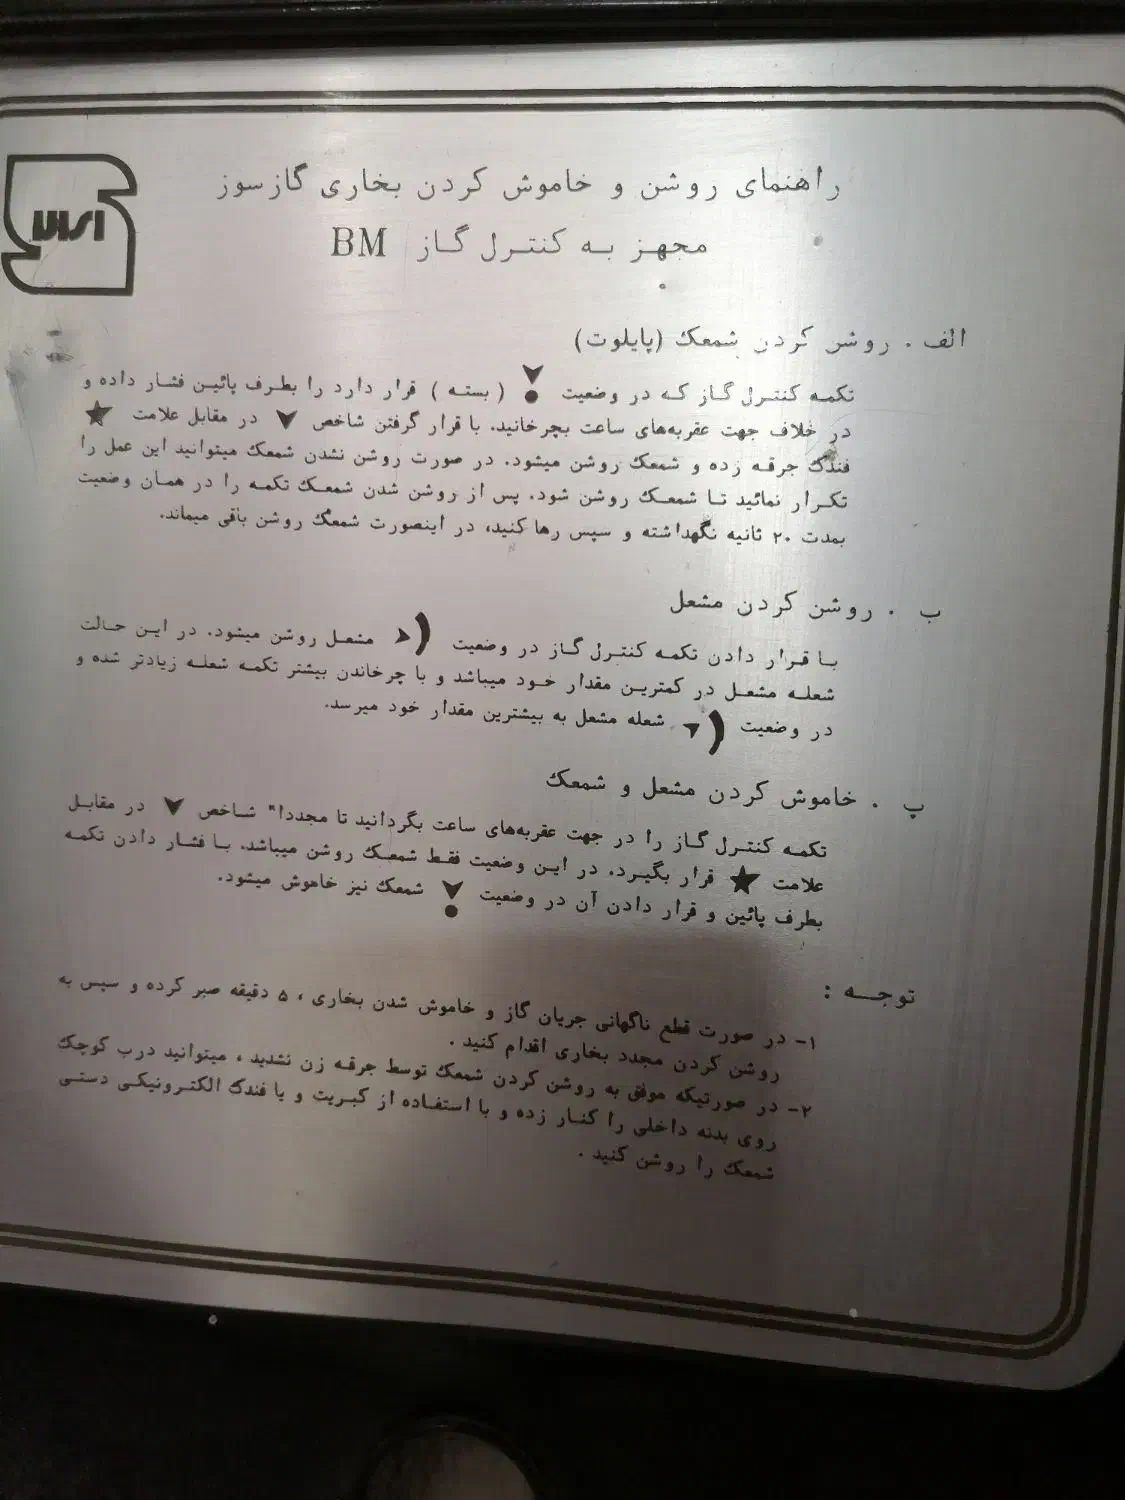 راهنمای روشن و خاموش کردن بخاری گازسوز
مجهز به کنترل گاز BM
الف . روشن کردن شمعک (پایلوت)
تکمه کنترل گاز که در وضعیت (بسته) قرار دارد را بطرف پائین فشار داده و
در خلاف جهت عقربه‌های ساعت بچرخانید. با قرار گرفتن شاخص در مقابل علامت ★
فندک جرقه زده و شمعک روشن میشود. در صورت روشن نشدن شمعک میتوانید این عمل را
تکرار نمائید تا شمعک روشن شود. پس از روشن شدن شمعک تکمه را در همان وضعیت
بمدت ۲۰ ثانیه نگهداشته و سپس رها کنید، در اینصورت شمعک روشن باقی میماند.
ب . روشن کردن مشعل
با قرار دادن تکمه کنترل گاز در وضعیت مشعل روشن میشود. در این حالت
شعله مشعل در کمترین مقدار خود میباشد و با چرخاندن بیشتر تکمه شعله زیادتر شده و
در وضعیت شعله مشعل به بیشترین مقدار خود میرسد.
پ . خاموش کردن مشعل و شمعک
تکمه کنترل گاز را در جهت عقربه‌های ساعت بگردانید تا مجددا" شاخص در مقابل
علامت ★ قرار بگیرد. در این وضعیت فقط شمعک روشن میباشد. با فشار دادن تکمه
بطرف پائین و قرار دادن آن در وضعیت شمعک نیز خاموش میشود.
توجه :
۱- در صورت قطع ناگهانی جریان گاز و خاموش شدن بخاری ، ۵ دقیقه صبر کرده و سپس به
روشن کردن مجدد بخاری اقدام کنید .
۲- در صورتیکه موفق به روشن کردن شمعک توسط جرقه زن نشدید ، میتوانید درب کوچک
روی بدنه داخلی را کنار زده و با استفاده از کبریت و یا فندک الکترونیکی دستی
شمعک را روشن کنید .